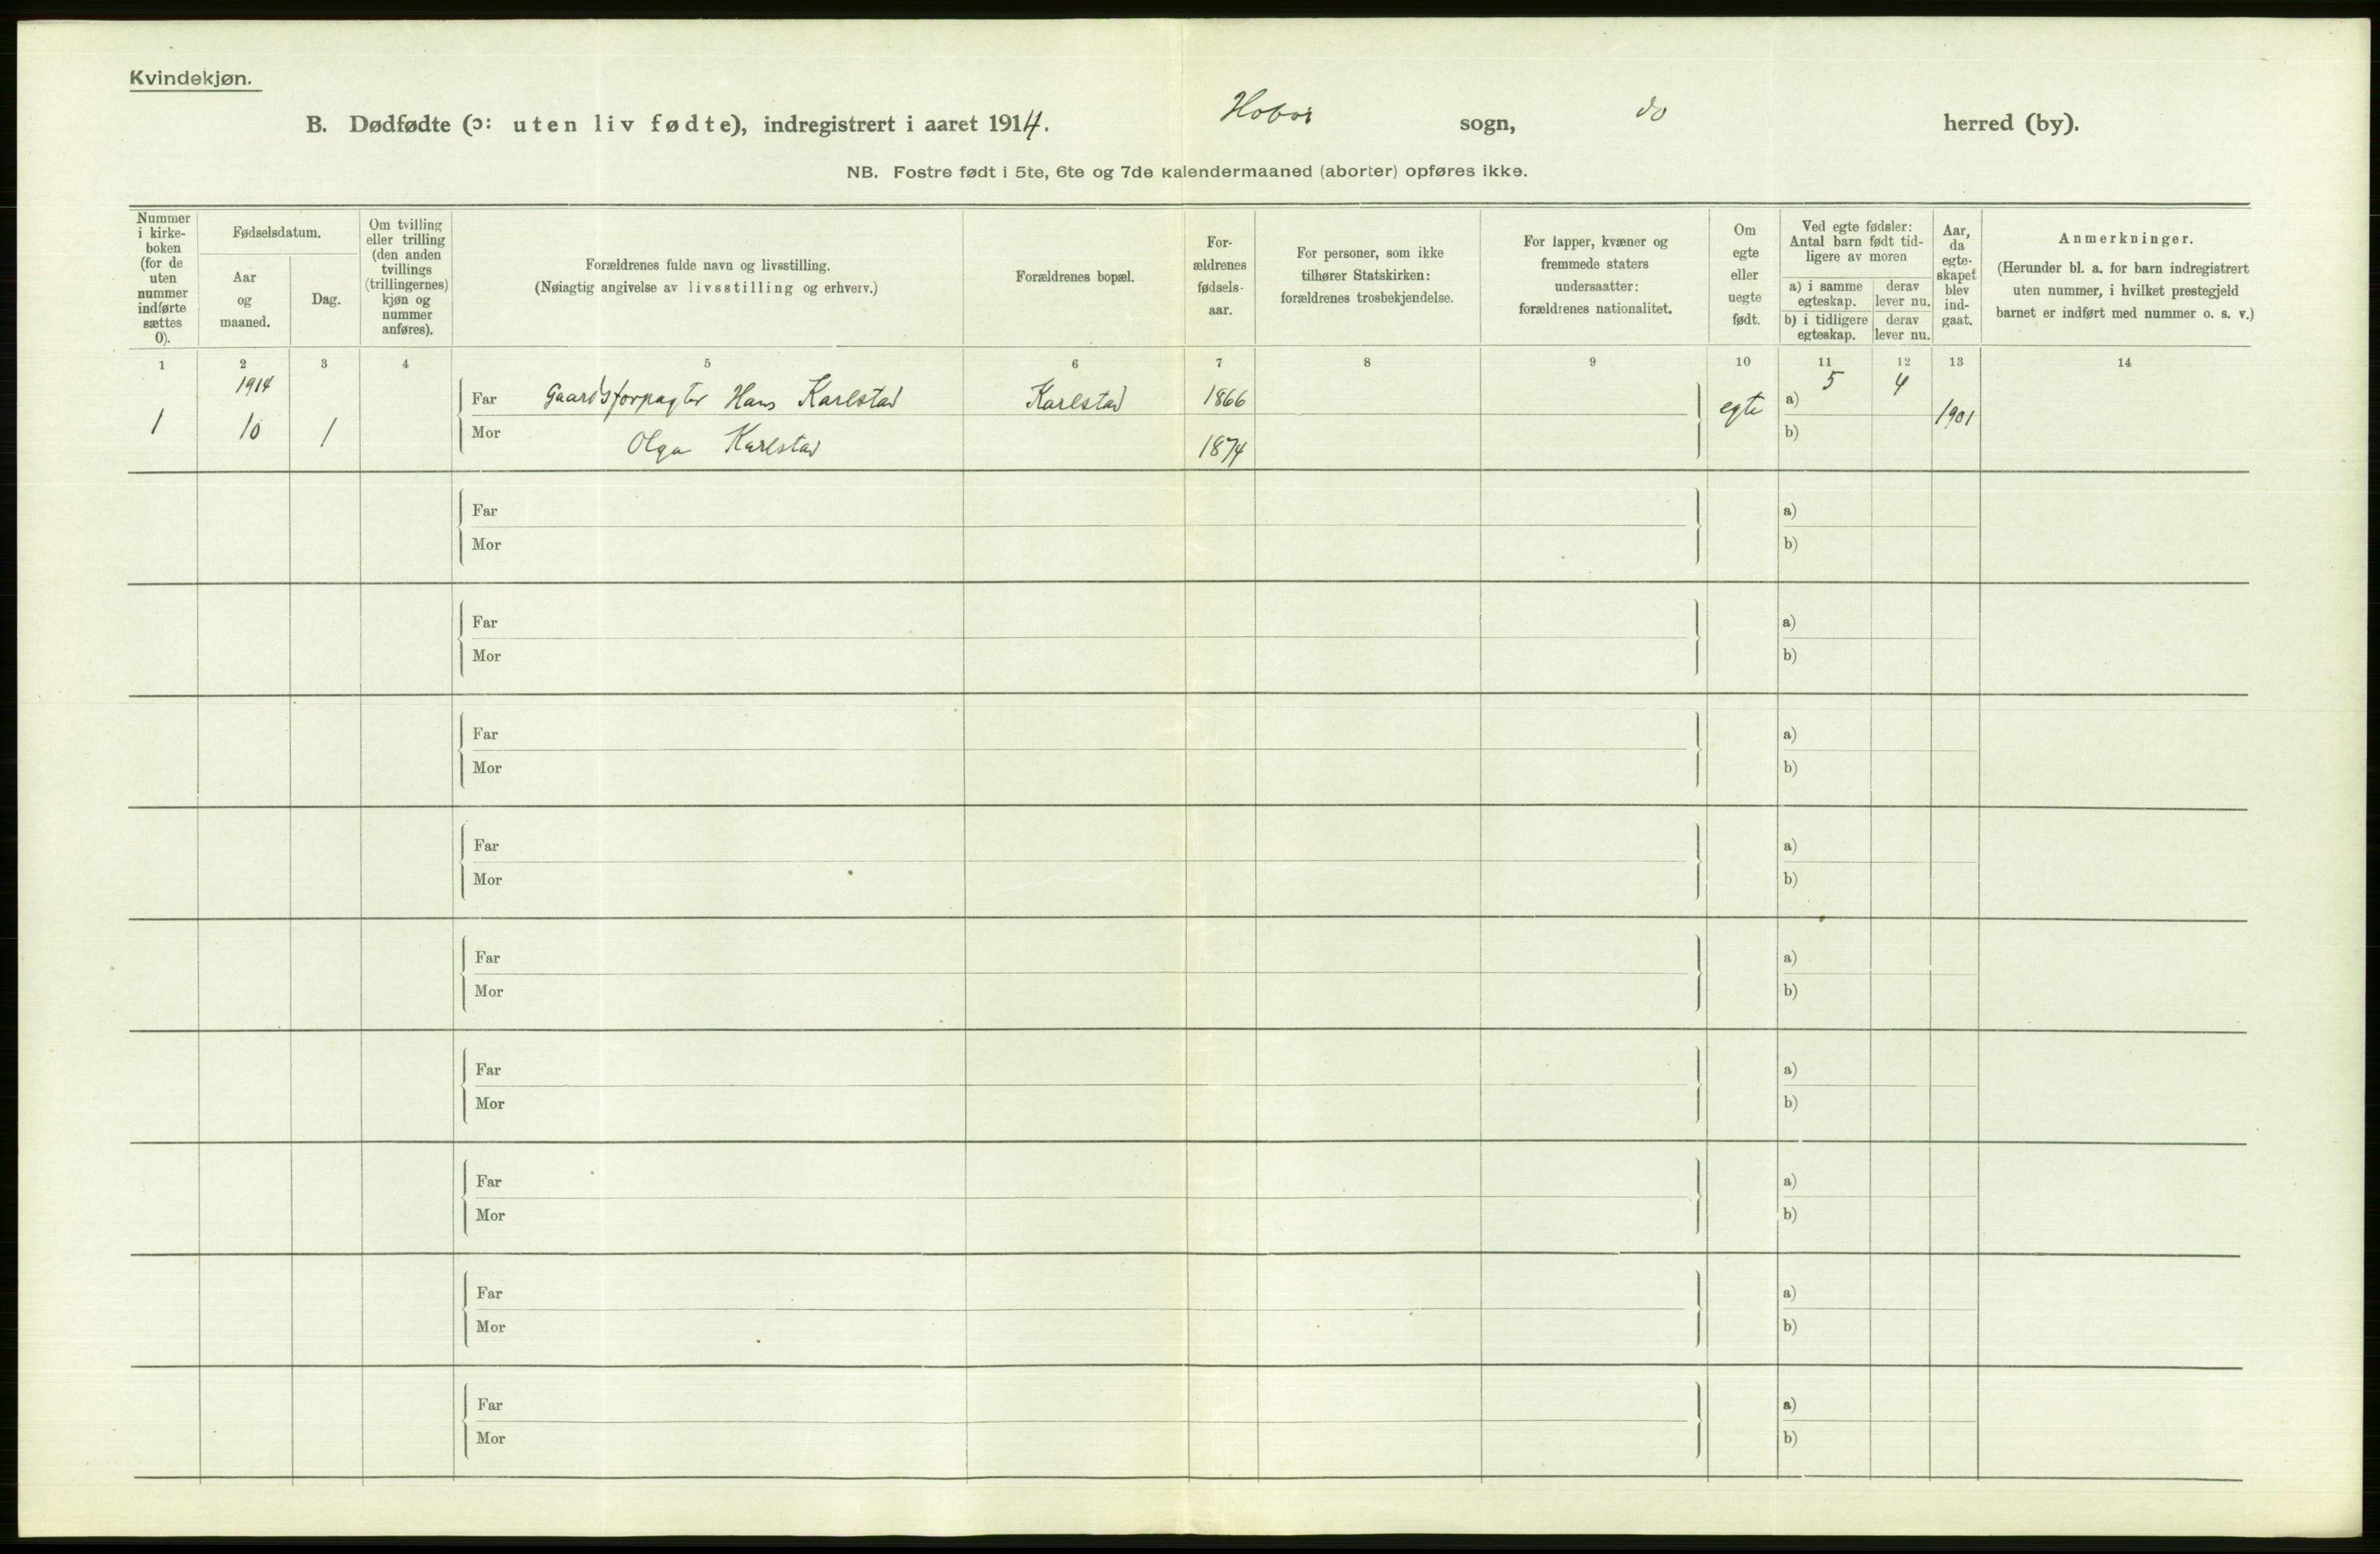 Kvindekjøn.
B. Dødfødte (ɔ: uten liv fødte), indregistrert i aaret 1914. Hobøl sogn, do herred (by).
NB. Fostre født i 5te, 6te og 7de kalendermaaned (aborter) opføres ikke.
Nummer
i kirke-
boken
(for de
uten
nummer
indførte
sættes
0).
Fødselsdatum.
Aar
og
maaned.
Dag.
Om tvilling
eller trilling
(den anden
tvillings
(trillingernes)
kjøn og
nummer
anføres).
Forældrenes fulde navn og livsstilling.
(Nøiagtig angivelse av livsstilling og erhverv.)
Forældrenes bopæl.
For-
ældrenes
fødsels-
aar.
For personer, som ikke
tilhører Statskirken:
forældrenes trosbekjendelse.
For lapper, kvæner og
fremmede staters
undersaatter:
forældrenes nationalitet.
Om
egte
eller
uegte
født.
Ved egte fødsler:
Antal barn født tid-
ligere av moren
a) i samme
egteskap.
derav
lever nu.
b) i tidligere
egteskap.
derav
lever nu.
Aar,
da
egte-
skapet
blev
ind-
gaat.
Anmerkninger.
(Herunder bl. a. for barn indregistrert
uten nummer, i hvilket prestegjeld
barnet er indført med nummer o. s. v.)
1 2 3 4 5 6 7 8 9 10 11 12 13 14
1914
1 10 1
Far Gaardsforpagter Hans Karlstad Karlstad 1866 egte a) 5 4 1901
Mor Olga Karlstad 1874 b)
Far a)
Mor b)
Far a)
Mor b)
Far a)
Mor b)
Far a)
Mor b)
Far a)
Mor b)
Far a)
Mor b)
Far a)
Mor b)
Far a)
Mor b)
Far a)
Mor b)